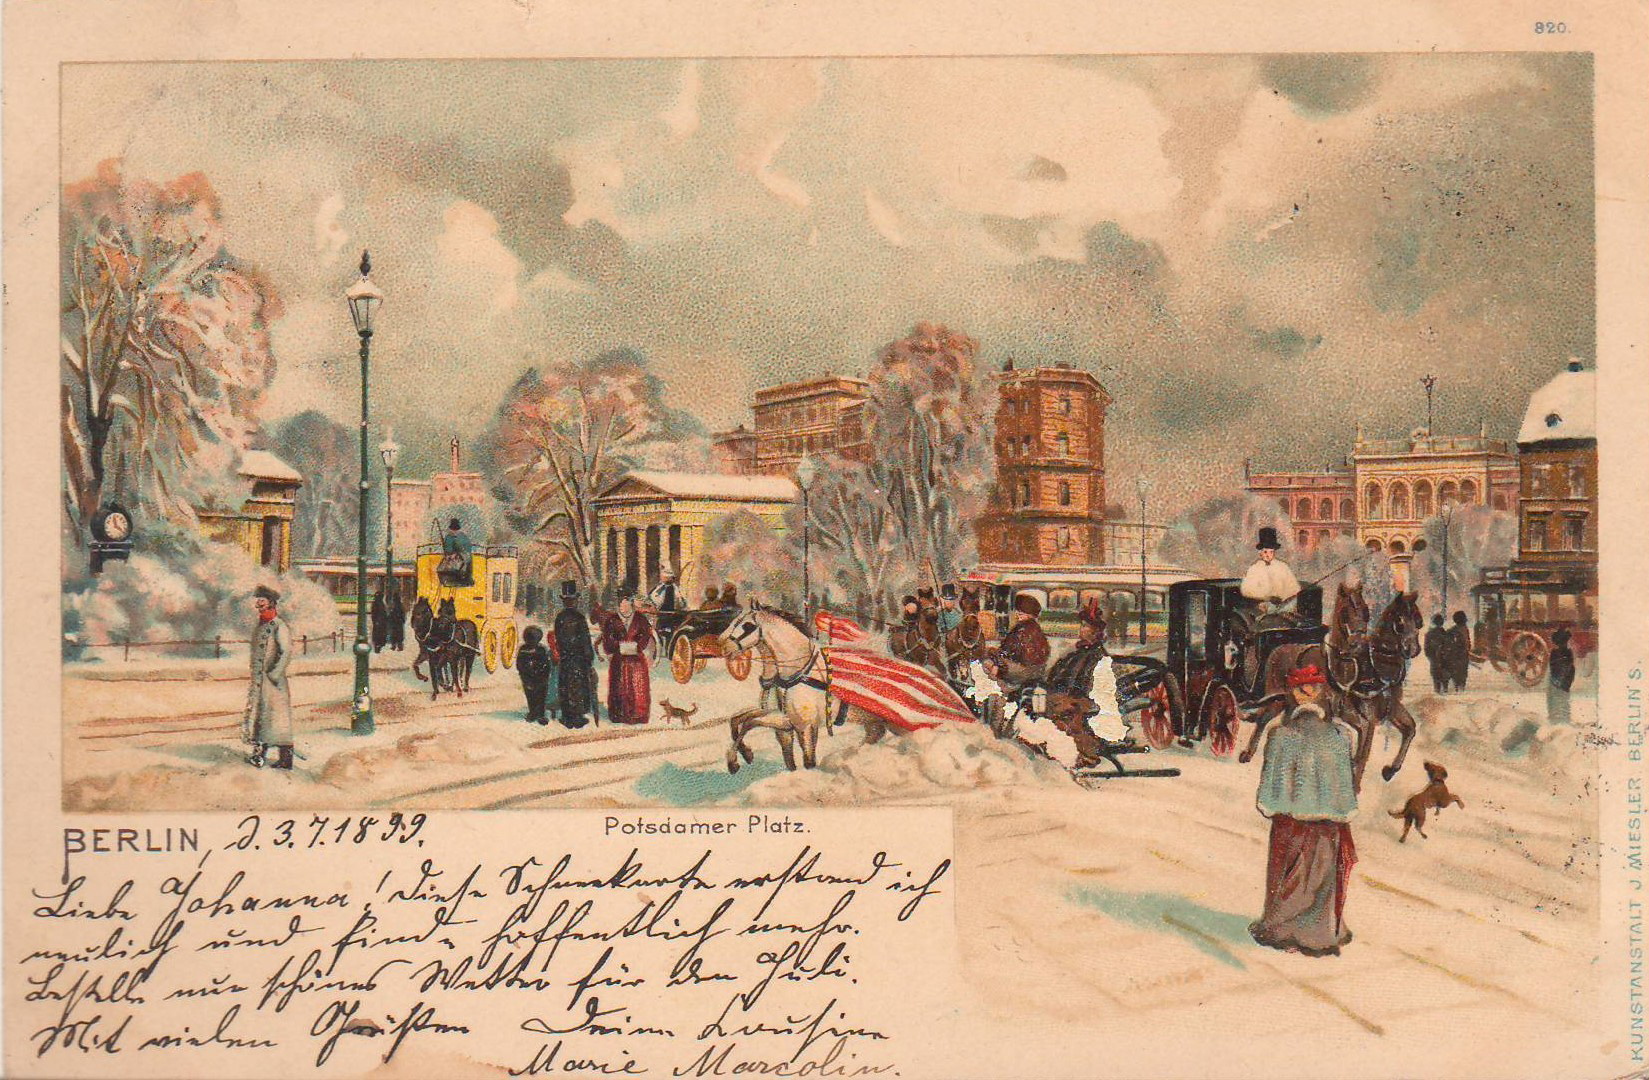 820.
BERLIN, d. 3.7.1899.
Potsdamer Platz.
Liebe Johanna! Diese Schneekarte erstand ich
neulich und finde hoffentlich mehr.
Bestelle nur schönes Wetter für den Juli.
Mit vielen Grüßen Deine Cousine
Marie Marcolin.
KUNSTANSTALT J. MIESLER BERLIN S.